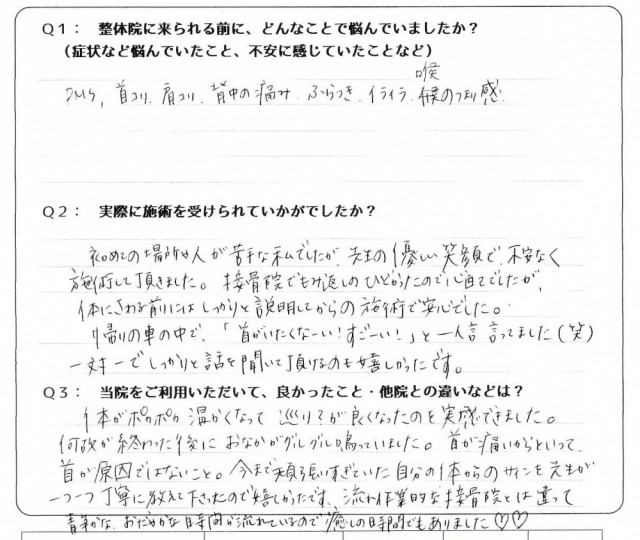 Q1: 整体院に来られる前に、どんなことで悩んでいましたか？
（症状など悩んでいたこと、不安に感じていたことなど）
喉
PMS, 首コリ. 肩コリ. 背中の痛み. ふらつき. イライラ. 候のつまり感.
Q2: 実際に施術を受けられていかがでしたか？
初めての場所や人が苦手な私でしたが、先生の優しい笑顔で、不安なく
施術して頂きました。接骨院でもみ返しのひどかったので心配でしたが、
体にされる前にはしっかりと説明してからの施術で安心でした。
帰りの車の中で、「首がいたくなーい！すごーい！」と一人言 言ってました（笑）
一対一でしっかりと話を聞いて頂けるのも嬉しかったです。
Q3: 当院をご利用いただいて、良かったこと・他院との違いなどは？
体がポカポカ温かくなって 巡り？が良くなったのを実感できました。
何故か終わった後に おなかがグルグル鳴っていました。首が痛いからといって、
首が原因ではないこと。今まで頑張りすぎていた自分の体からのサインを先生が
一つ一つ丁寧に教えて下さったので嬉しかったです。流れ作業的な接骨院とは違って
静かな、おだやかな時間が流れているので癒しの時間でもありました♡♡